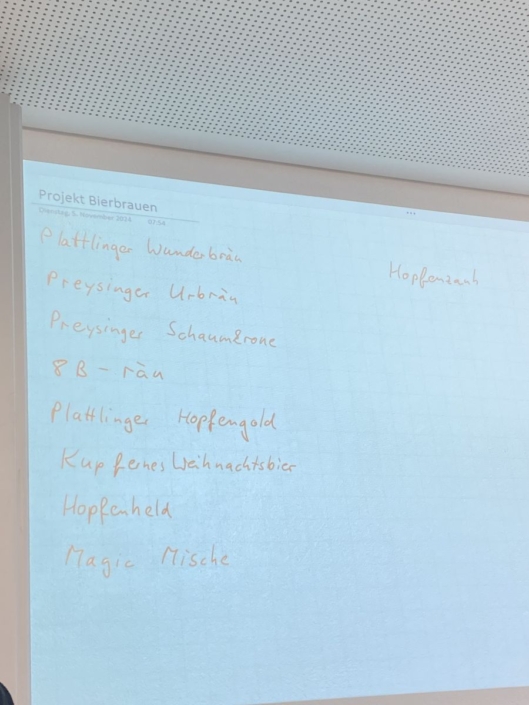 Projekt Bierbrauen
Dienstag, 5. November 2024 07:54
Plattlinger Wunderbräu
Preysinger Urbräu
Preysinger Schaumkrone
8B-räu
Plattlinger Hopfengold
Kupfernes Weihnachtsbier
Hopfenheld
Magic Mische